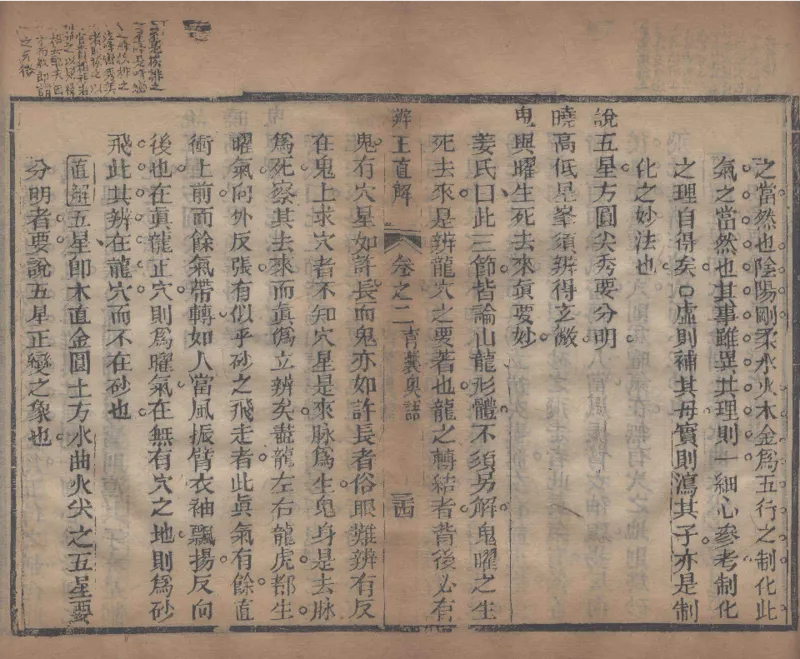 之當然也陰陽剛柔水火木金為五行之制化此
氣之當然也其事雖異其理則一細心參考制化
之理自得矣○虛則補其母實則瀉其子亦是制
化之妙法也
說五星方圓尖秀要分明
曉高低星峯須辨得玄微
鬼與曜生死去來眞要妙
姜氏曰此三節皆論山龍形體不須另解鬼曜之生
死去來是辨龍穴之要著也龍之轉結者背後必有
辨正直解 卷之二 青囊奧語 三四
鬼有穴星如許長而鬼亦如許長者俗眼難辨有反
在鬼上求穴者不知穴星是來脉為生鬼身是去脉
為死察其去來而眞僞立辨矣盡龍左右龍虎都生
曜氣向外反張有似乎砂之飛走者此眞氣有餘直
衝上前而餘氣帶轉如人當風振臂衣袖飄揚反向
後也在眞龍正穴則為曜氣在無有穴之地則為砂
飛此其辨在龍穴而不在砂也
直解五星即木直金圓土方水曲火尖之五星要
分明者要說五星正變之象也